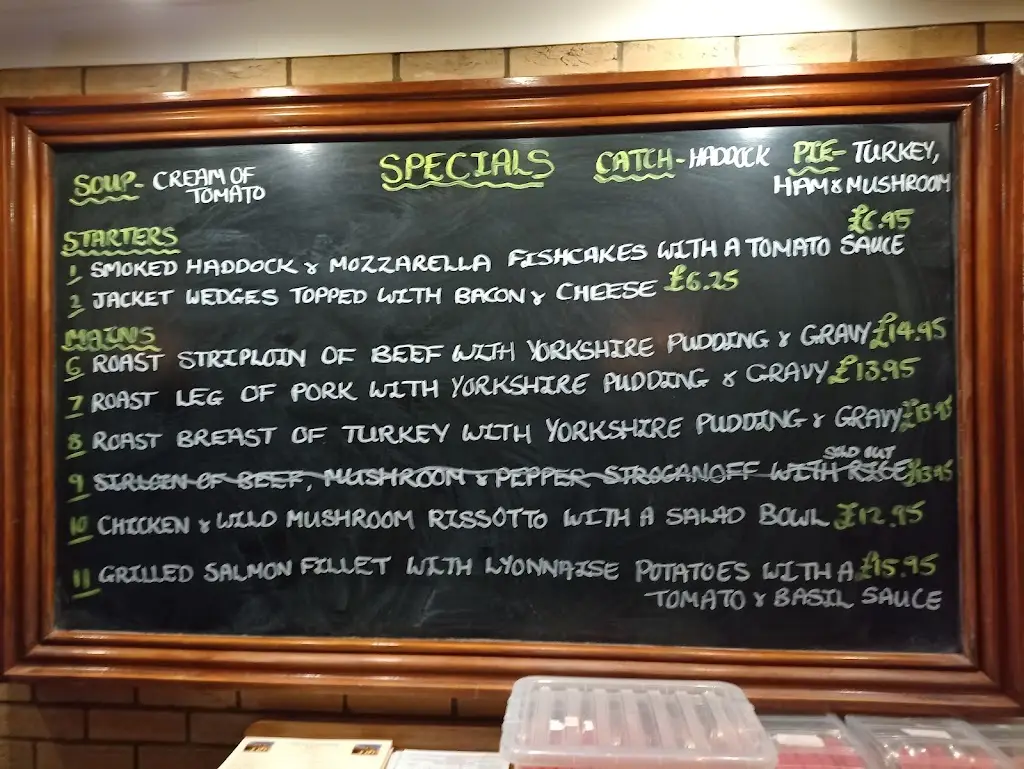 SPECIALS
SOUP- CREAM OF
TOMATO
CATCH- HADDOCK
PIE- TURKEY,
HAM & MUSHROOM
STARTERS
£6.95
1 SMOKED HADDOCK & MOZZARELLA FISHCAKES WITH A TOMATO SAUCE
2 JACKET WEDGES TOPPED WITH BACON & CHEESE £6.25
MAINS
6 ROAST STRIPLOIN OF BEEF WITH YORKSHIRE PUDDING & GRAVY £14.95
7 ROAST LEG OF PORK WITH YORKSHIRE PUDDING & GRAVY £13.95
8 ROAST BREAST OF TURKEY WITH YORKSHIRE PUDDING & GRAVY £13.95
SOLD OUT
9 SIRLOIN OF BEEF, MUSHROOM & PEPPER STROGANOFF WITH RICE £13.95
10 CHICKEN & WILD MUSHROOM RISSOTTO WITH A SALAD BOWL £12.95
11 GRILLED SALMON FILLET WITH LYONNAISE POTATOES WITH A £15.95
TOMATO & BASIL SAUCE